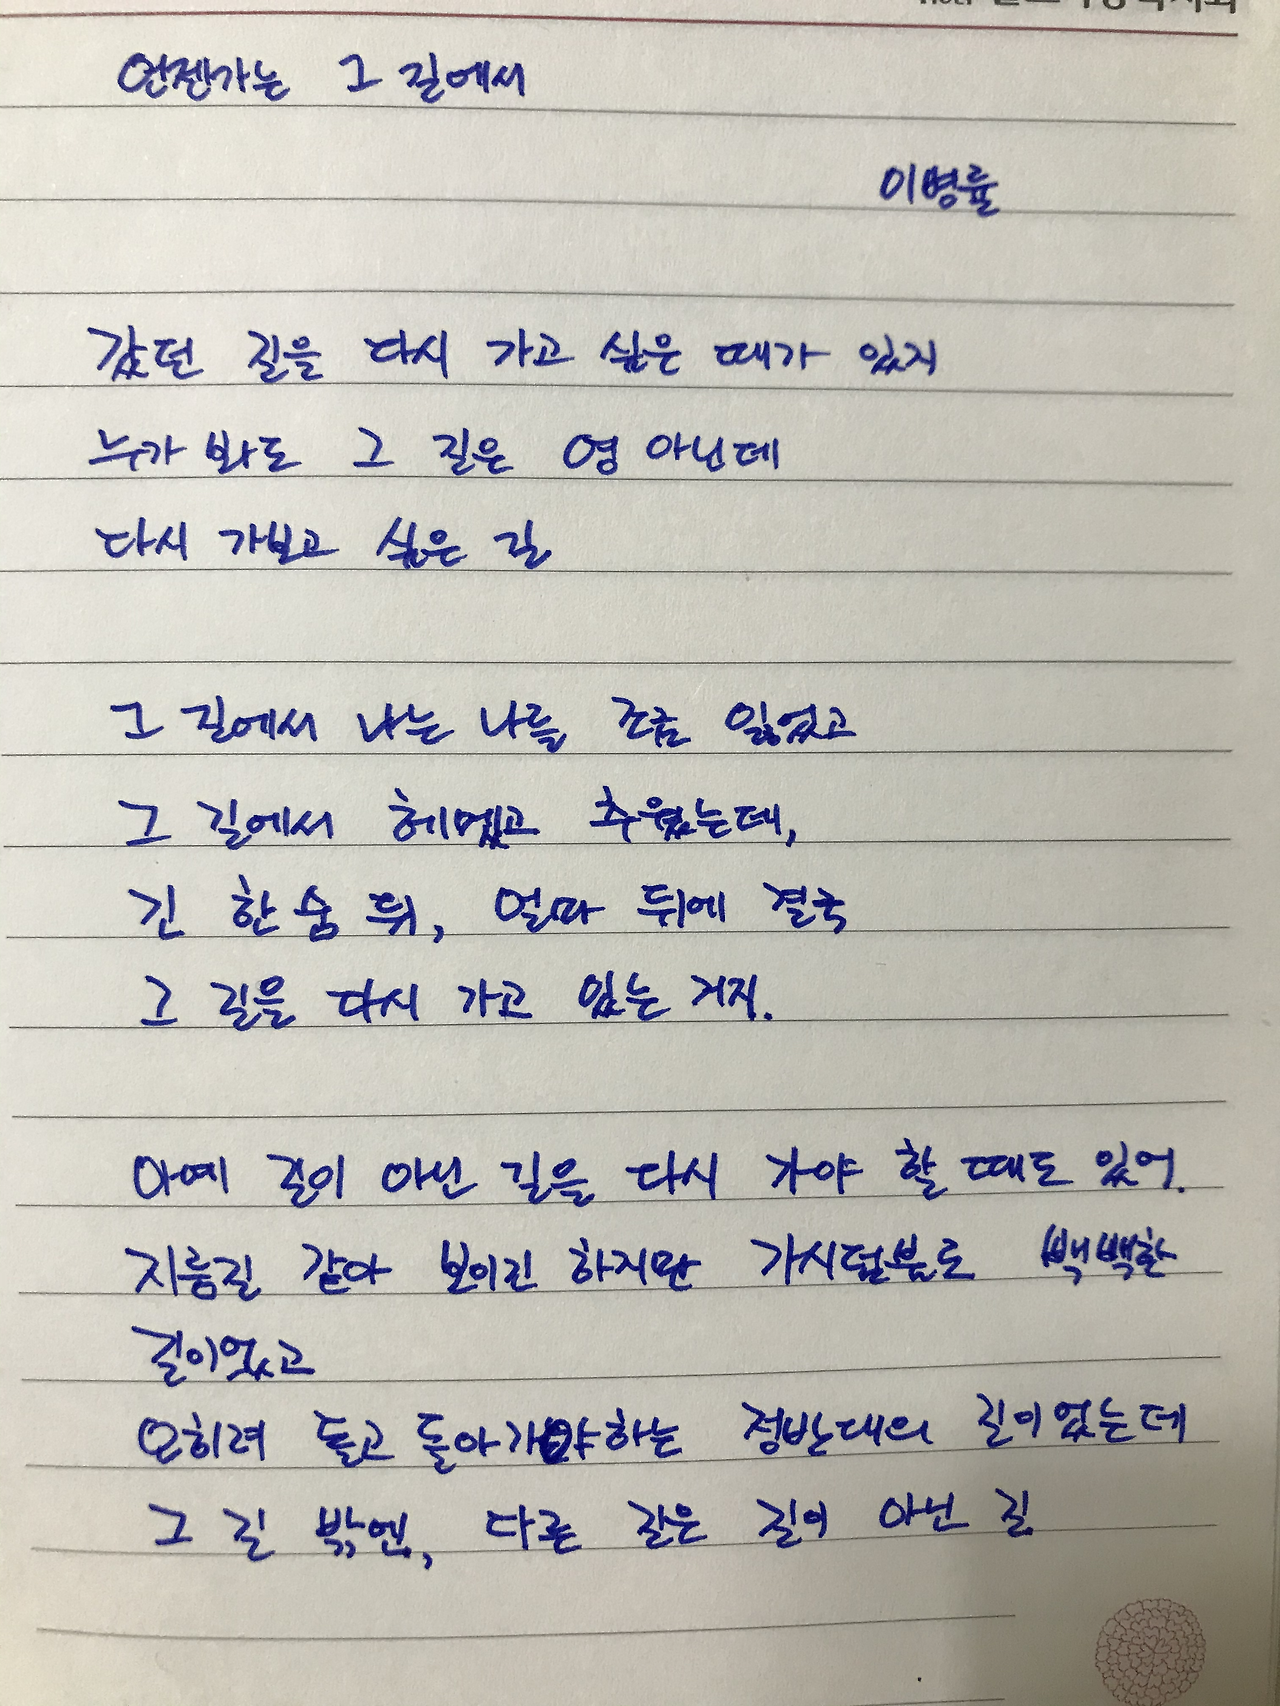 언젠가는 그 길에서
이병률
갔던 길을 다시 가고 싶은 때가 있지
누가 봐도 그 길은 영 아닌데
다시 가보고 싶은 길
그 길에서 나는 나를 조금 잃었고
그 길에서 헤맸고 추웠는데,
긴 한숨 뒤, 얼마 뒤에 결국
그 길을 다시 가고 있는 거지.
아예 길이 아닌 길을 다시 가야 할 때도 있어.
지름길 같아 보이긴 하지만 가시덤불로 빽빽한
길이었고
오히려 돌고 돌아가야하는 정반대의 길이었는데
그 길 밖엔, 다른 길은 길이 아닌 길